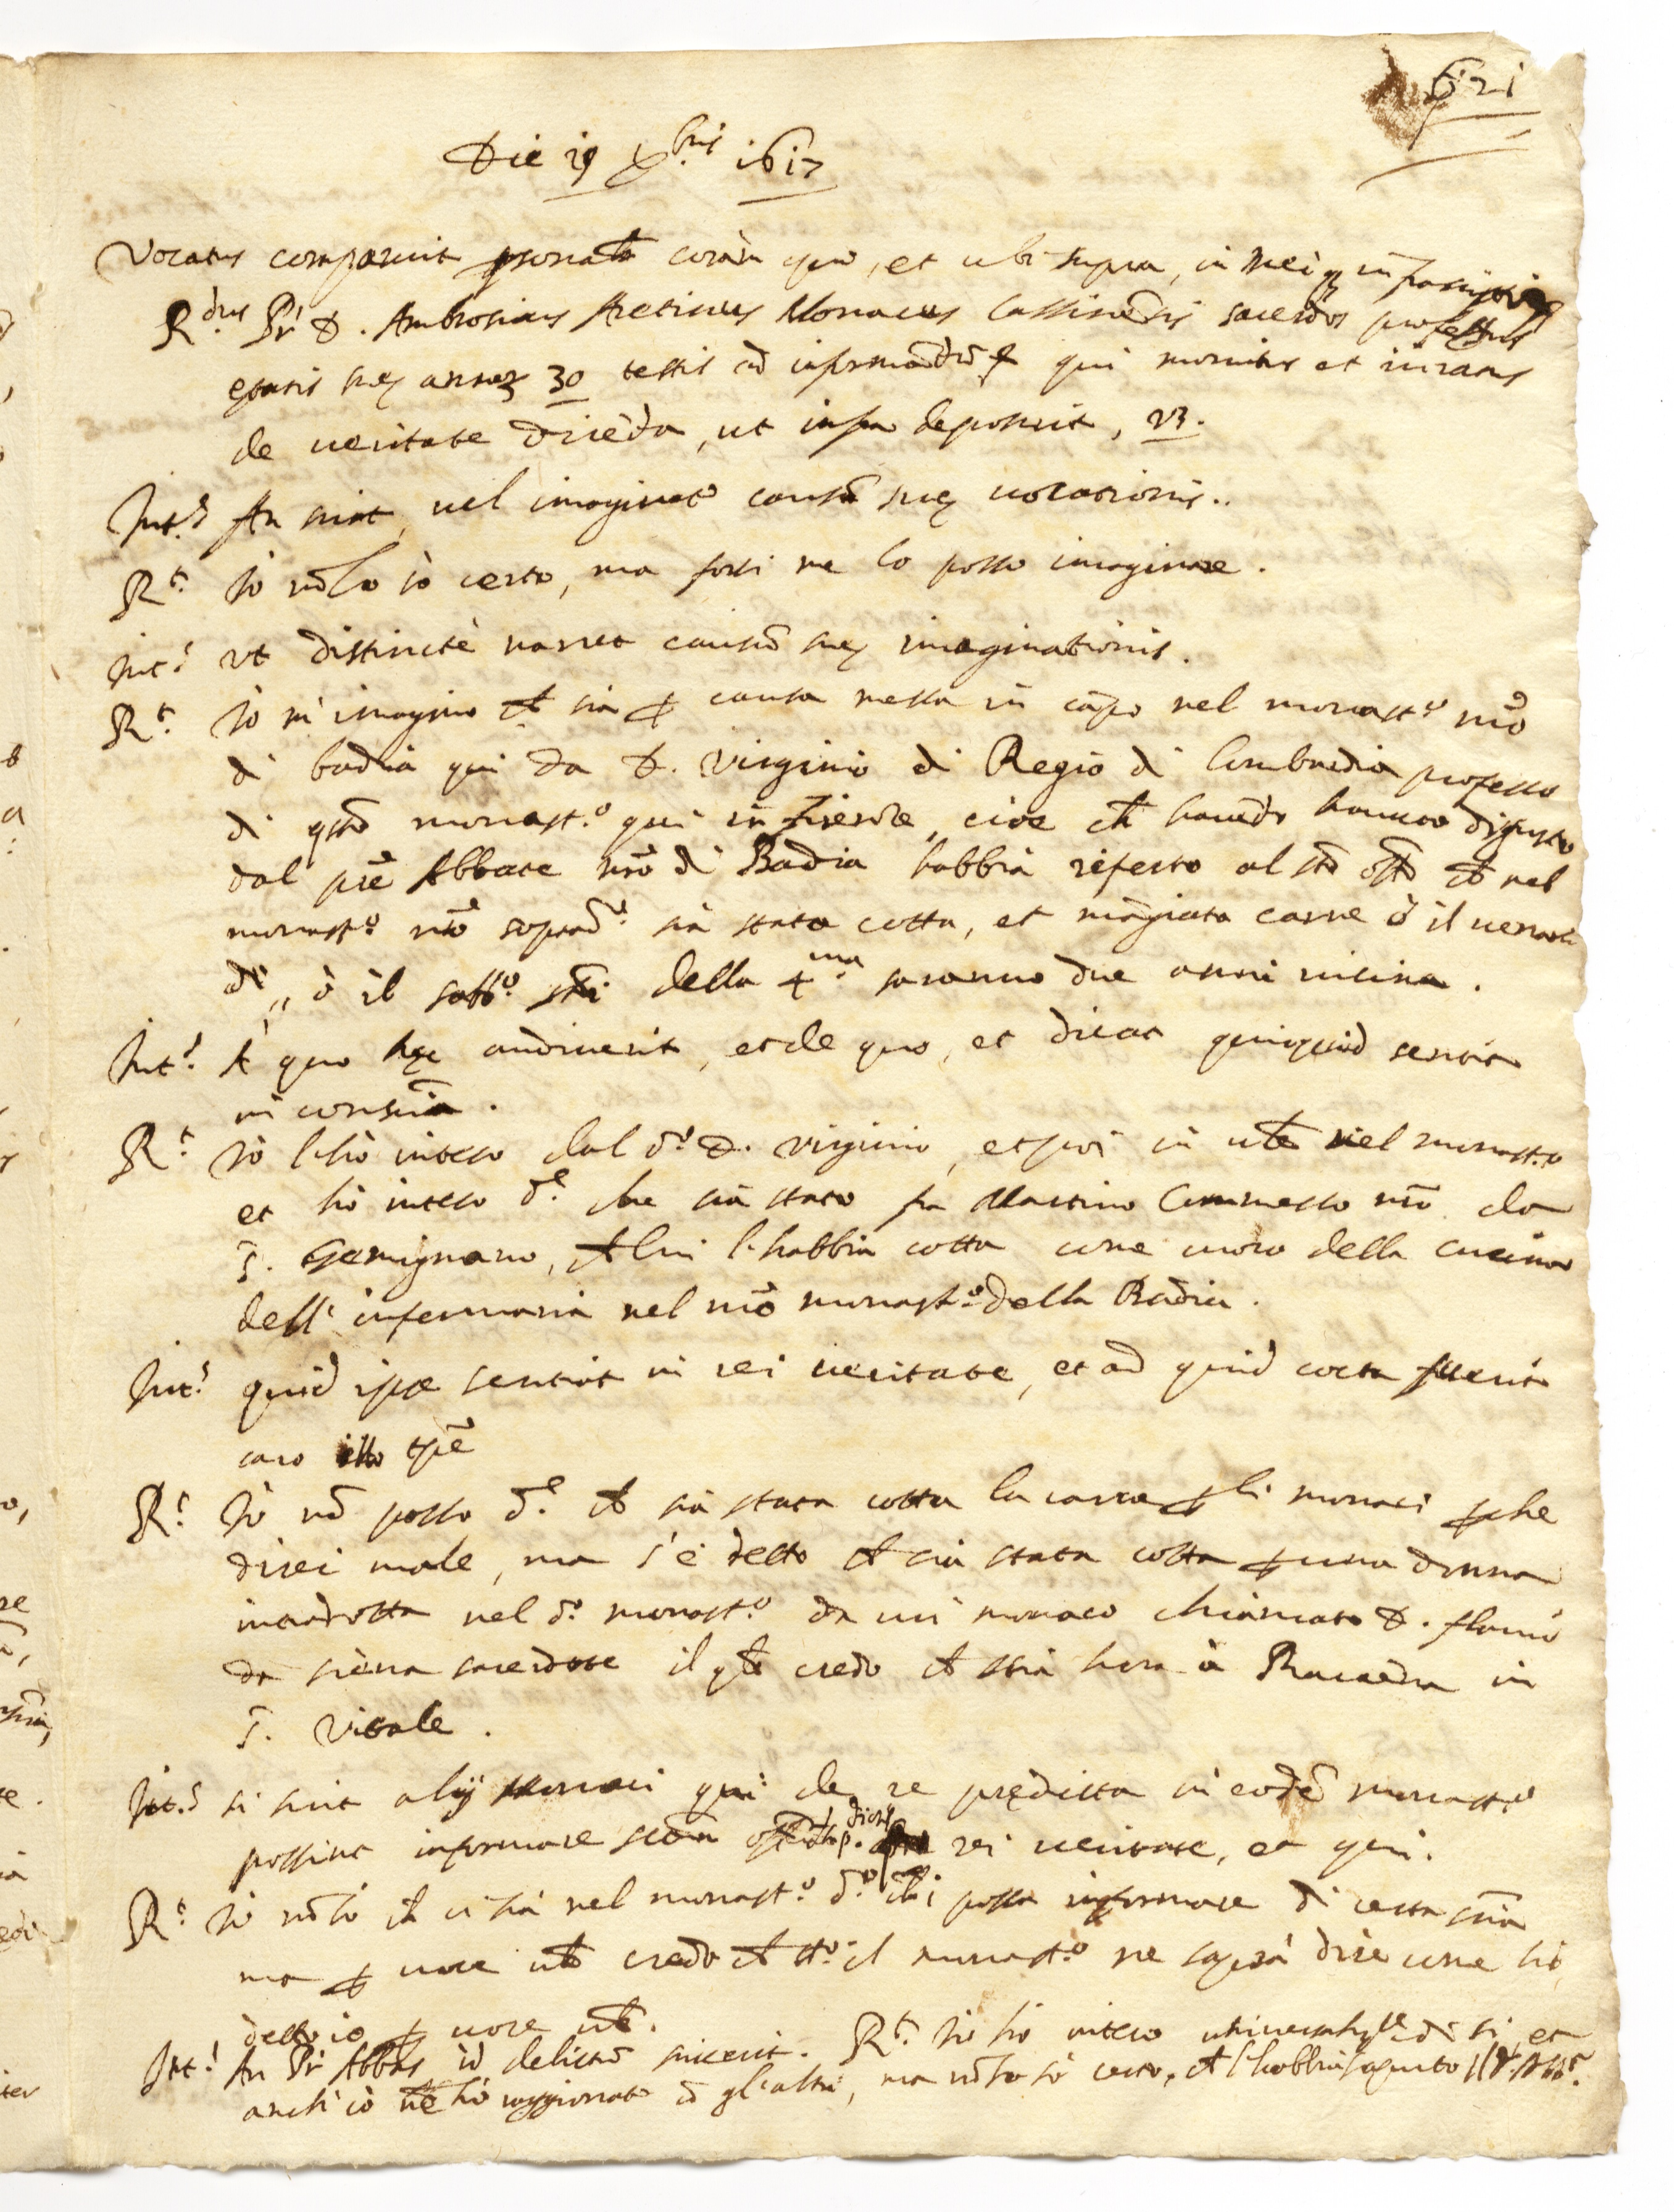 621
Die 19 Xbris 1617
Vocatus comparuit psonalr coràm quo, et ubi supra, in meiq
R.dus Pr D. Ambrosius Aretinus Monacus Cassinēsis sacerdos professus
ętatis suę annoꝝ 30 testis ad informādū qui monitus et iuratus
de veritate dicēda, ut infra deposuit, vz.
Int.s An sciat, vel imaginet causā suę vocationis..
R.t Io nō lo sò certo, ma forsi me lo posso imaginare.
Int.s Vt distinctè narret causā suę imaginationis.
R.t Io m' imagino ch sia p causa messa in cāpo nel monast.o nrō
di badia qui da D. Virginio di Regio di Lombardia professo
di qsto monast.o qui in Fiesole, cioe ch havēdo havuto disgusto
dal pre Abbate nrō di Badia habbia referto al sto offo ch nel
monast.o nrō sopradº sia stata cotta, et māgiata carne ò il venerdi
dì, ò il sabbº sti della 4.ma saranno due anni vicina.
Int.s A quo hęc audiverit, et de quo, et dicat quicquid sentit
in consciā.
R.t Io l'hò inteso dal dº D. Virginio, et poi in ute nel monast.o
et hò inteso d.e che sia stato fra Martino Commesso nrō da
S. Gemignano, ch lui l'habbia cotta come cuoco della cucina
dell' infermaria nel nrō monast.o della Badia.
Int.s quid ipse sentiat in rei veritate, et ad quid cocta fuerit
caro illo tpē
R.t Io nō posso d.e ch sia stata cotta la carne p li monaci pche
direi male, ma s'è detto ch sia stata cotta p una donna
introdotta nel dº monast.o da un monaco chiamato D. flavio
da siena sacerdote il qle credo ch stia hora à Ravenna in
S. Vitale.
Int.s si sint alij monaci qui de re prędicta in eodē monast.o
possint informare rei veritate, et qui.
R.t Io nō sò ch ci sia nel monast.o dº chi possa informare di certa sciā
ma p voce ute credo ch tt.o il monast.o ne saprà dire come hò
detto io p voce ute.
Int.s An Pr Abbas id delictū sciverit. R.t Io hò inteso di si et
anch' iò ne hò raggionato cō gl'altri, ma nō lo sò certo, ch l'habbia saputo il